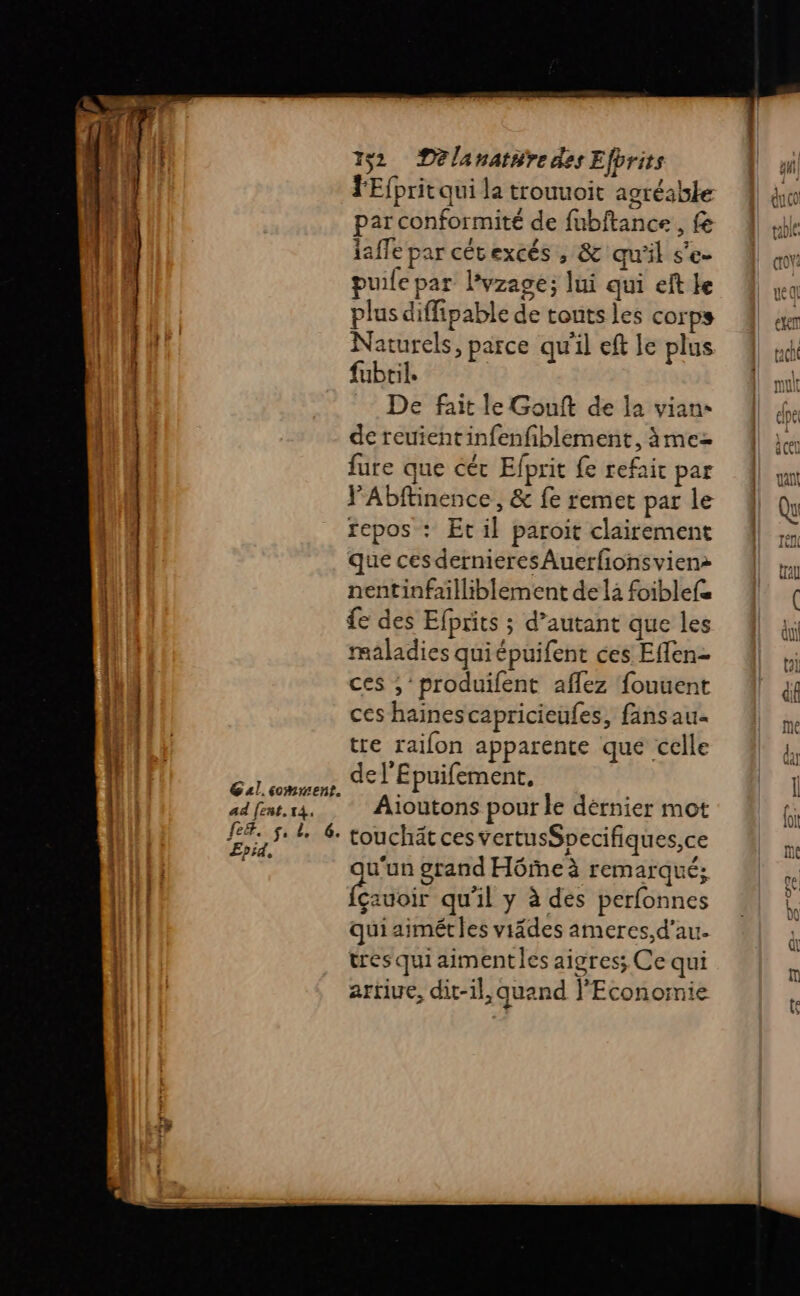 152 De la nature des Esprits
l'Esprit qui la trouuoit agréable
par conformité de substance, se
lasse par cét excés, & qu'il s'e-
puise par l'vzage; lui qui est le
plus dissipable de touts les corps
Naturels, parce qu'il est le plus
subtil.
De fait le Goust de la vian-
de reuient insensiblement, à me-
sure que cét Esprit se refait par
l'Abstinence, & se remet par le
repos : Et il paroit clairement
que ces dernieres Auersions vien-
nent infailliblement de la foibles-
se des Esprits ; d'autant que les
maladies qui épuisent ces Essen-
ces, produisent assez souuent
ces haines capricieuses, sans au-
tre raison apparente que celle
de l'Epuisement.
Gal. comment.
ad sent. 14.
sect. 5. l. 6.
Epid.
Aioutons pour le dérnier mot
touchãt ces vertus Specifiques, ce
qu'un grand Hõme à remarqué;
sçauoir qu'il y à des personnes
qui aimẽt les viãdes ameres, d'au-
tres qui aiment les aigres; Ce qui
arriue, dit-il, quand l'Economie